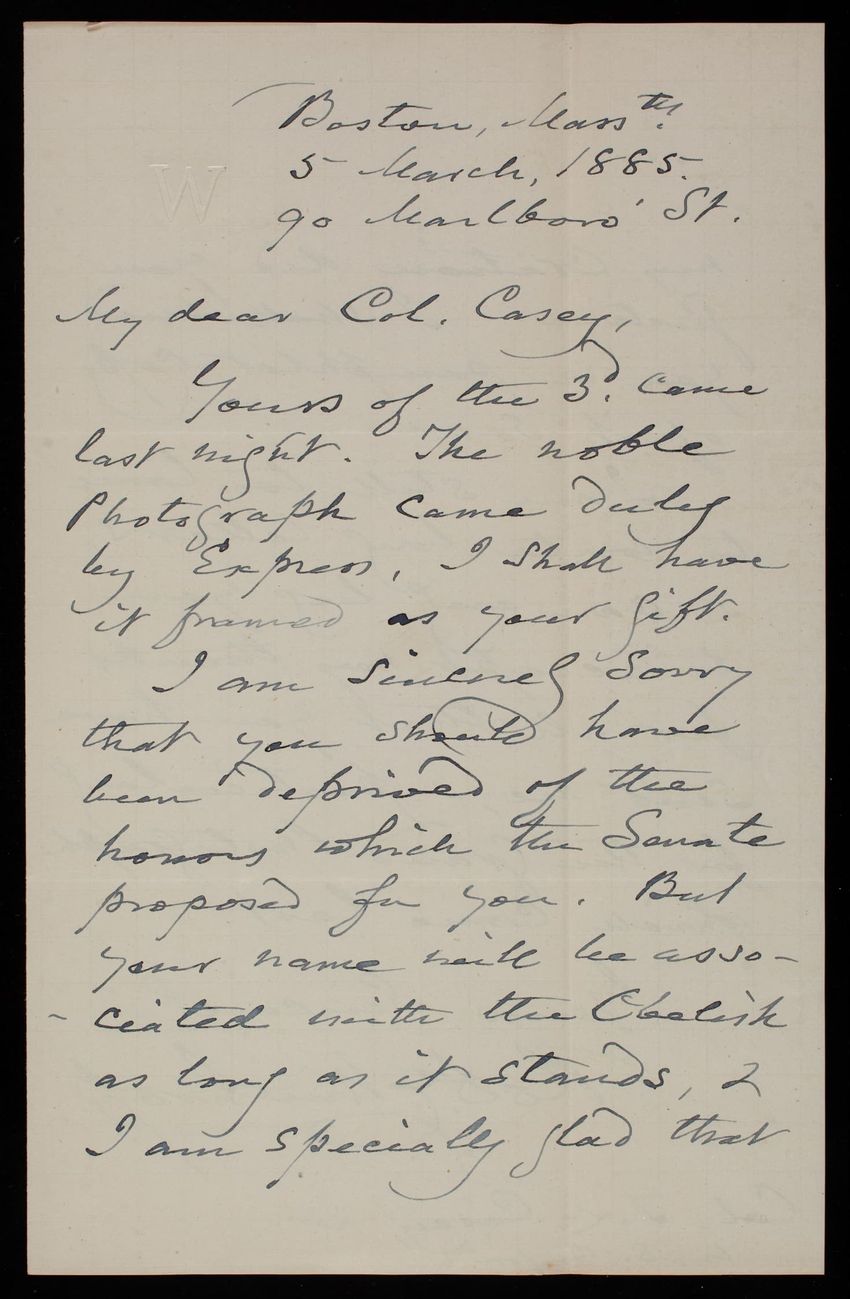 Boston, Massths.
5 March, 1885.
90 Marlboro' St.
W
My dear Col. Casey,
Yours of the 3d. came
last night. The noble
Photograph came duly
by Express, I shall have
it framed as your gift.
I am sincerely sorry
that you should have
been deprived of the
honors which the Senate
proposed for you. But
your name will be asso-
-ciated with the Obelisk
as long as it stands, &
I am specially glad that